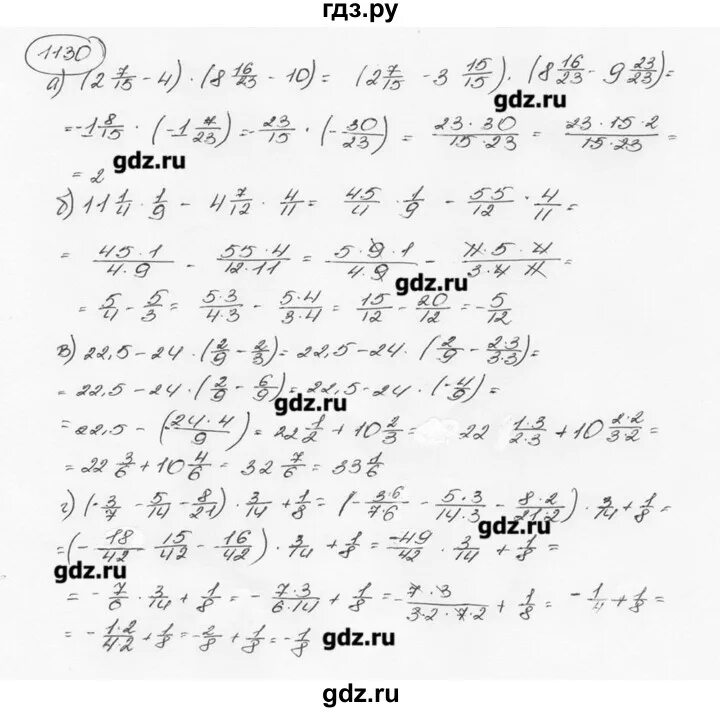 гдз.ру
1130
а) (2 7/15 - 4) · (8 16/23 - 10) = (2 7/15 - 3 15/15) · (8 16/23 - 9 23/23) =
gdz.ru
= -1 8/15 · (-1 7/23) = -23/15 · (-30/23) = 23·30/15·23 = 23·15·2/15·23 =
gdz.ru
= 2
б) 11 1/4 · 1/9 - 4 7/12 · 4/11 = 45/4 · 1/9 - 55/12 · 4/11 =
= 45·1/4·9 - 55·4/12·11 = 5·9·1/4·9 - 11·5·4/3·4·11 =
gdz.ru
= 5/4 - 5/3 = 5·3/4·3 - 5·4/3·4 = 15/12 - 20/12 = -5/12
в) 22,5 - 24 · (2/9 - 2/3) = 22,5 - 24 · (2/9 - 2·3/3·3) =
= 22,5 - 24 · (2/9 - 6/9) = 22,5 - 24 · (-4/9) =
gdz.ru
= 22,5 - (24·4/9) = 22 1/2 + 10 2/3 = 22 1·3/2·3 + 10 2·2/3·2 =
= 22 3/6 + 10 4/6 = 32 7/6 = 33 1/6
г) (-3/7 - 5/14 - 8/21) · 3/14 + 1/8 = (-3·6/7·6 - 5·3/14·3 - 8·2/21·2) · 3/14 + 1/8 =
gdz.ru
= (-18/42 - 15/42 - 16/42) · 3/14 + 1/8 = -49/42 · 3/14 + 1/8 =
gdz.ru
= -7/6 · 3/14 + 1/8 = -7·3/6·14 + 1/8 = -7·3/3·2·7·2 + 1/8 = -1/4 + 1/8 =
= -1·2/4·2 + 1/8 = -2/8 + 1/8 = -1/8
gdz.ru
gdz.ru